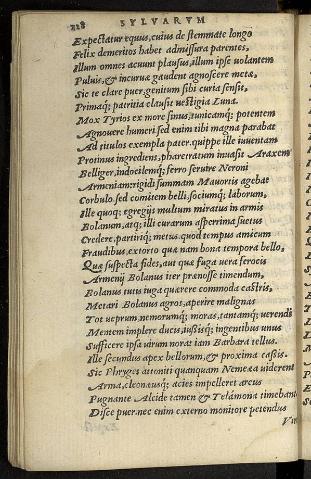 218
SYLVARVM
Expectatur equus, cuius de stemmate longo
Felix demeritos habet admissura parentes,
Illum omnes acuunt plausus, illum ipse uolantem
Puluis, & incuruæ gaudent agnoscere metæ,
Sic te clare puer, genitum sibi curia sensit,
Primaq; patritia clausit uestigia Luna.
Mox Tyrios ex more sinus, tunicamq; potentem
Agnouere humeri, sed enim tibi magna parabat
Ad titulos exempla pater. quippe ille iuuentam
Protinus ingrediens, pharetratum inuasit Araxem
Belliger, indocilemq; ferro seruire Neroni
Armeniam: rigidi summam Mauortis agebat
Corbulo, sed comitem belli, sociumq; laborum,
Ille quoq; egregijs multum miratus in armis
Bolanum, atq; illi curarum asperrima suetus
Credere, partiriq; metus. quod tempus amicum
Fraudibus, extorto quæ nam bona tempora bello,
Quæ suspecta fides, aut quæ fuga uera ferocis
Armenij. Bolanus iter prænosse timendum,
Bolanus tutis iuga quærere commoda castris,
Metari Bolanus agros, aperire malignas
Tot ueprum, nemorumq; moras, tantamq; uerendi
Mentem implere ducis, iussisq; ingentibus unus
Sufficere. ipsa uirum norat iam Barbara tellus.
Ille secundus apex bellorum, & proxima cassis.
Sic Phryges attoniti quanquam Nemeæa uiderent
Arma, cleonæusq; acies impelleret arcus
Pugnante Alcide tamen & Telamona timebant
Disce puer, nec enim externo monitore petendus